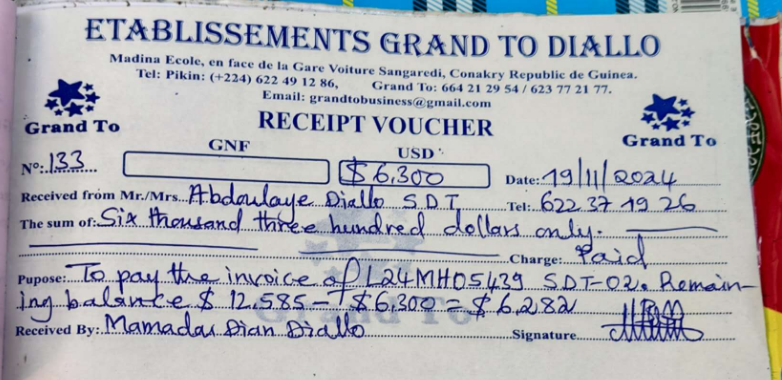 ETABLISSEMENTS GRAND TO DIALLO
Madina Ecole, en face de la Gare Voiture Sangaredi, Conakry Republic de Guinea.
Tel: Pikin: (+224) 622 49 12 86, Grand To: 664 21 29 54 / 623 77 21 77.
Email: grandtobusiness@gmail.com
Grand To
RECEIPT VOUCHER
Grand To
GNF USD
Nº: 133 $ 6,300 Date: 19/11/2024
Received from Mr./Mrs. Abdoulaye Diallo S.D.T Tel: 622 37 19 26
The sum of: Six thousand three hundred dollars only.
Charge: Paid
Pupose: To pay the invoice of L24MH05439 SDT-02. Remain-
ing balance $ 12,585 - $6,300 = $6,282
Received By: Mamadou Dian Diallo Signature